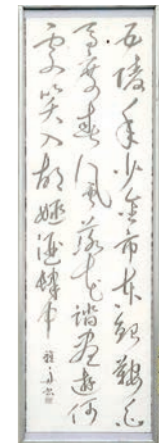 五陵年少金市東銀鞍白
馬度春風落花踏盡遊何
處笑入胡姬酒肆中